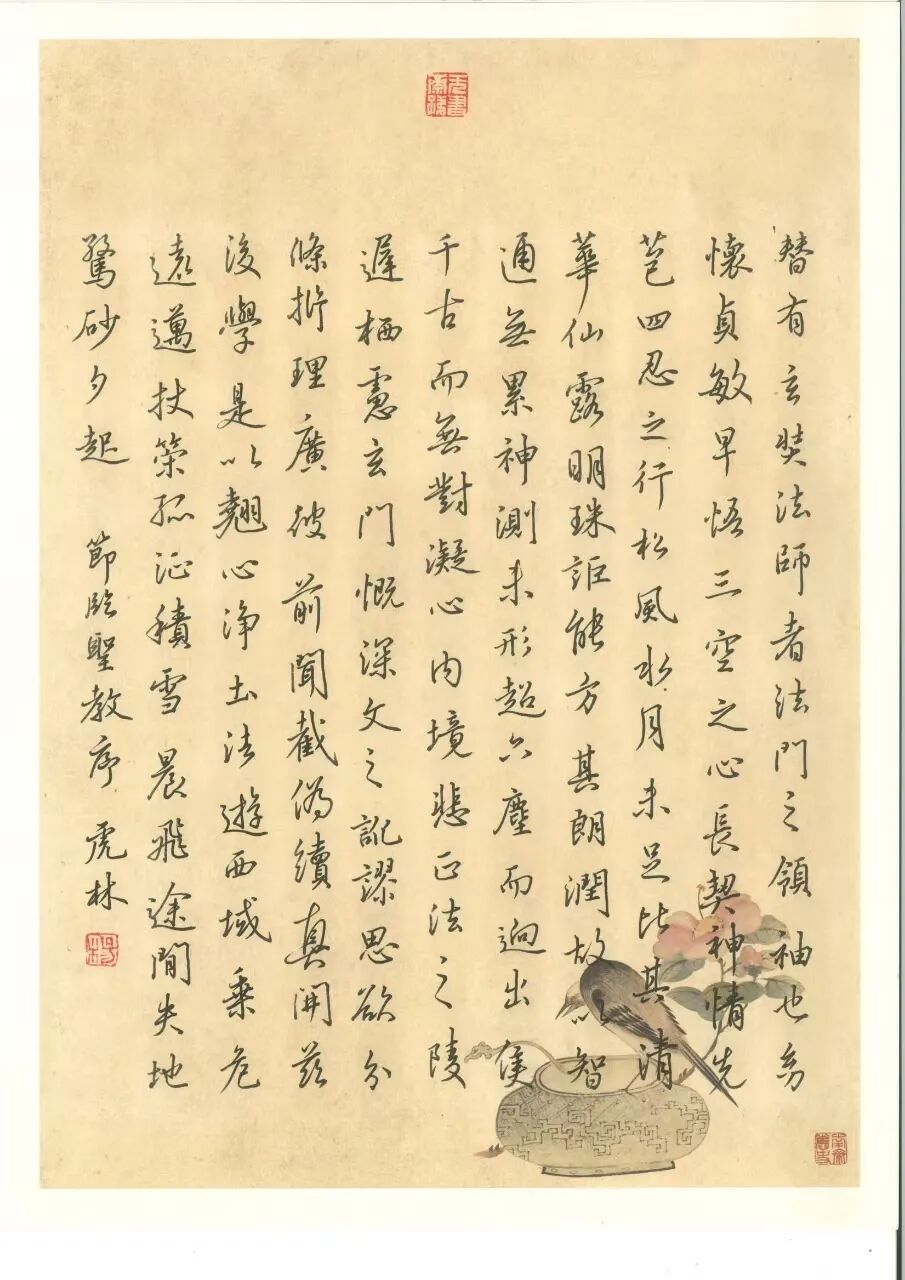 替有玄奘法師者法門之領袖也幼
懷貞敏早悟三空之心長契神情先
苞四忍之行松風水月未足比其清
華仙露明珠詎能方其朗潤故以智
通無累神測未形超六塵而迥出隻
千古而無對凝心内境悲正法之陵
遲栖慮玄門慨深文之訛謬思欲分
條析理廣彼前聞截偽續真開茲
後學是以翹心淨土法遊西域乘危
遠邁杖策孤征積雪晨飛途間失地
驚砂夕起 節臨聖教序 虎林